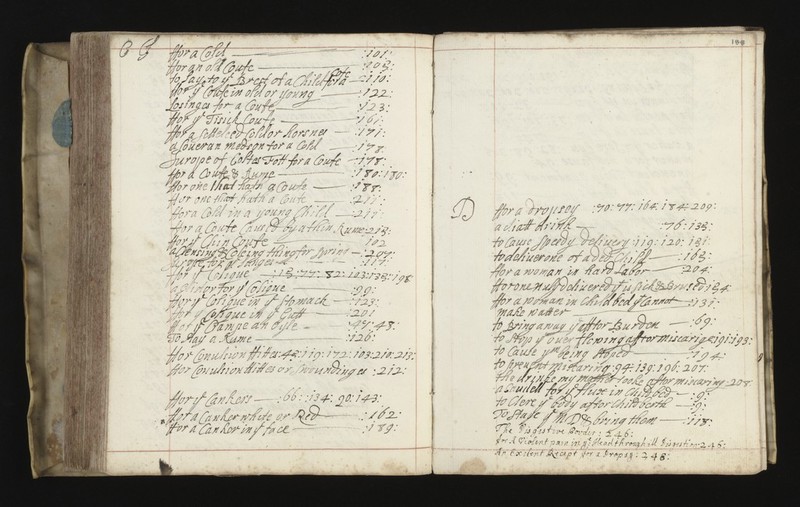 C
ffor a Cold :101:
ffor an old Coufe :103:
to Lay to ye Brest of a Child for a Cofe :110:
ffor ye Coufe in old or young :122:
Losinges for a Coufe :123:
ffor ye Tisick Coufe :161:
ffor a Setteled Cold or horsnes :171:
a Soueran medson for a Cold :178
Surope of Coltes Foot for a Coufe :178:
ffor a Coufe & Rume :180:180:
ffor one that hath a Coufe :188:
ffor one that hath a Coufe :211:
ffor a Cold in a young Child :211:
ffor a Coufe Caused by a thin Rume :213:
ffor ye Chin Coufe 102
a Clensing & Coleing thing for spring :207:
:117:
ffor ye Collique :113:77:82:103:138:198
a Glister for ye Colique :99:
ffor ye Collique in ye stomach :123:
ffor ye Collique in ye Gutt :201
ffor ye Crampe an oyle :47:48:
To stay a Rume :126:
ffor Convlsion ffittes :42:119:172:103:210:213:
ffor Convlsion ffittes or :212:
ffor ye Cankers :66:134:90:143:
ffor a Canker white or Red :162:
ffor a Canker in ye face :189:
D
ffor a dropsey :70:77:164:184:209:
a diatt drink :76:138:
to Cause speedy delivery :119:120:131:
to deliver one of a ded Child :163:
ffor a woman in hard labor 204:
ffor one nuly delivered yt is sick & Brused 134
ffor a woman in Child bed yt Cannot :131:
make watter
to Bring away ye after Burden :69:
to stop ye over flowing after miscarige 191:193:
to Cause ym being stoped :194:
to prevent miscaring :94:139:196:207:
the drinke my mother tooke after miscaring 207
for ye flux in Childbed :9:
to Clere ye body after Childberth :9:
To stay ye & bring them :118:
The Digestive Powder : 246:
for A Violent pain in ye Head through ill Digestion 245:
An Exelent Receipt for a Dropsy : 248: